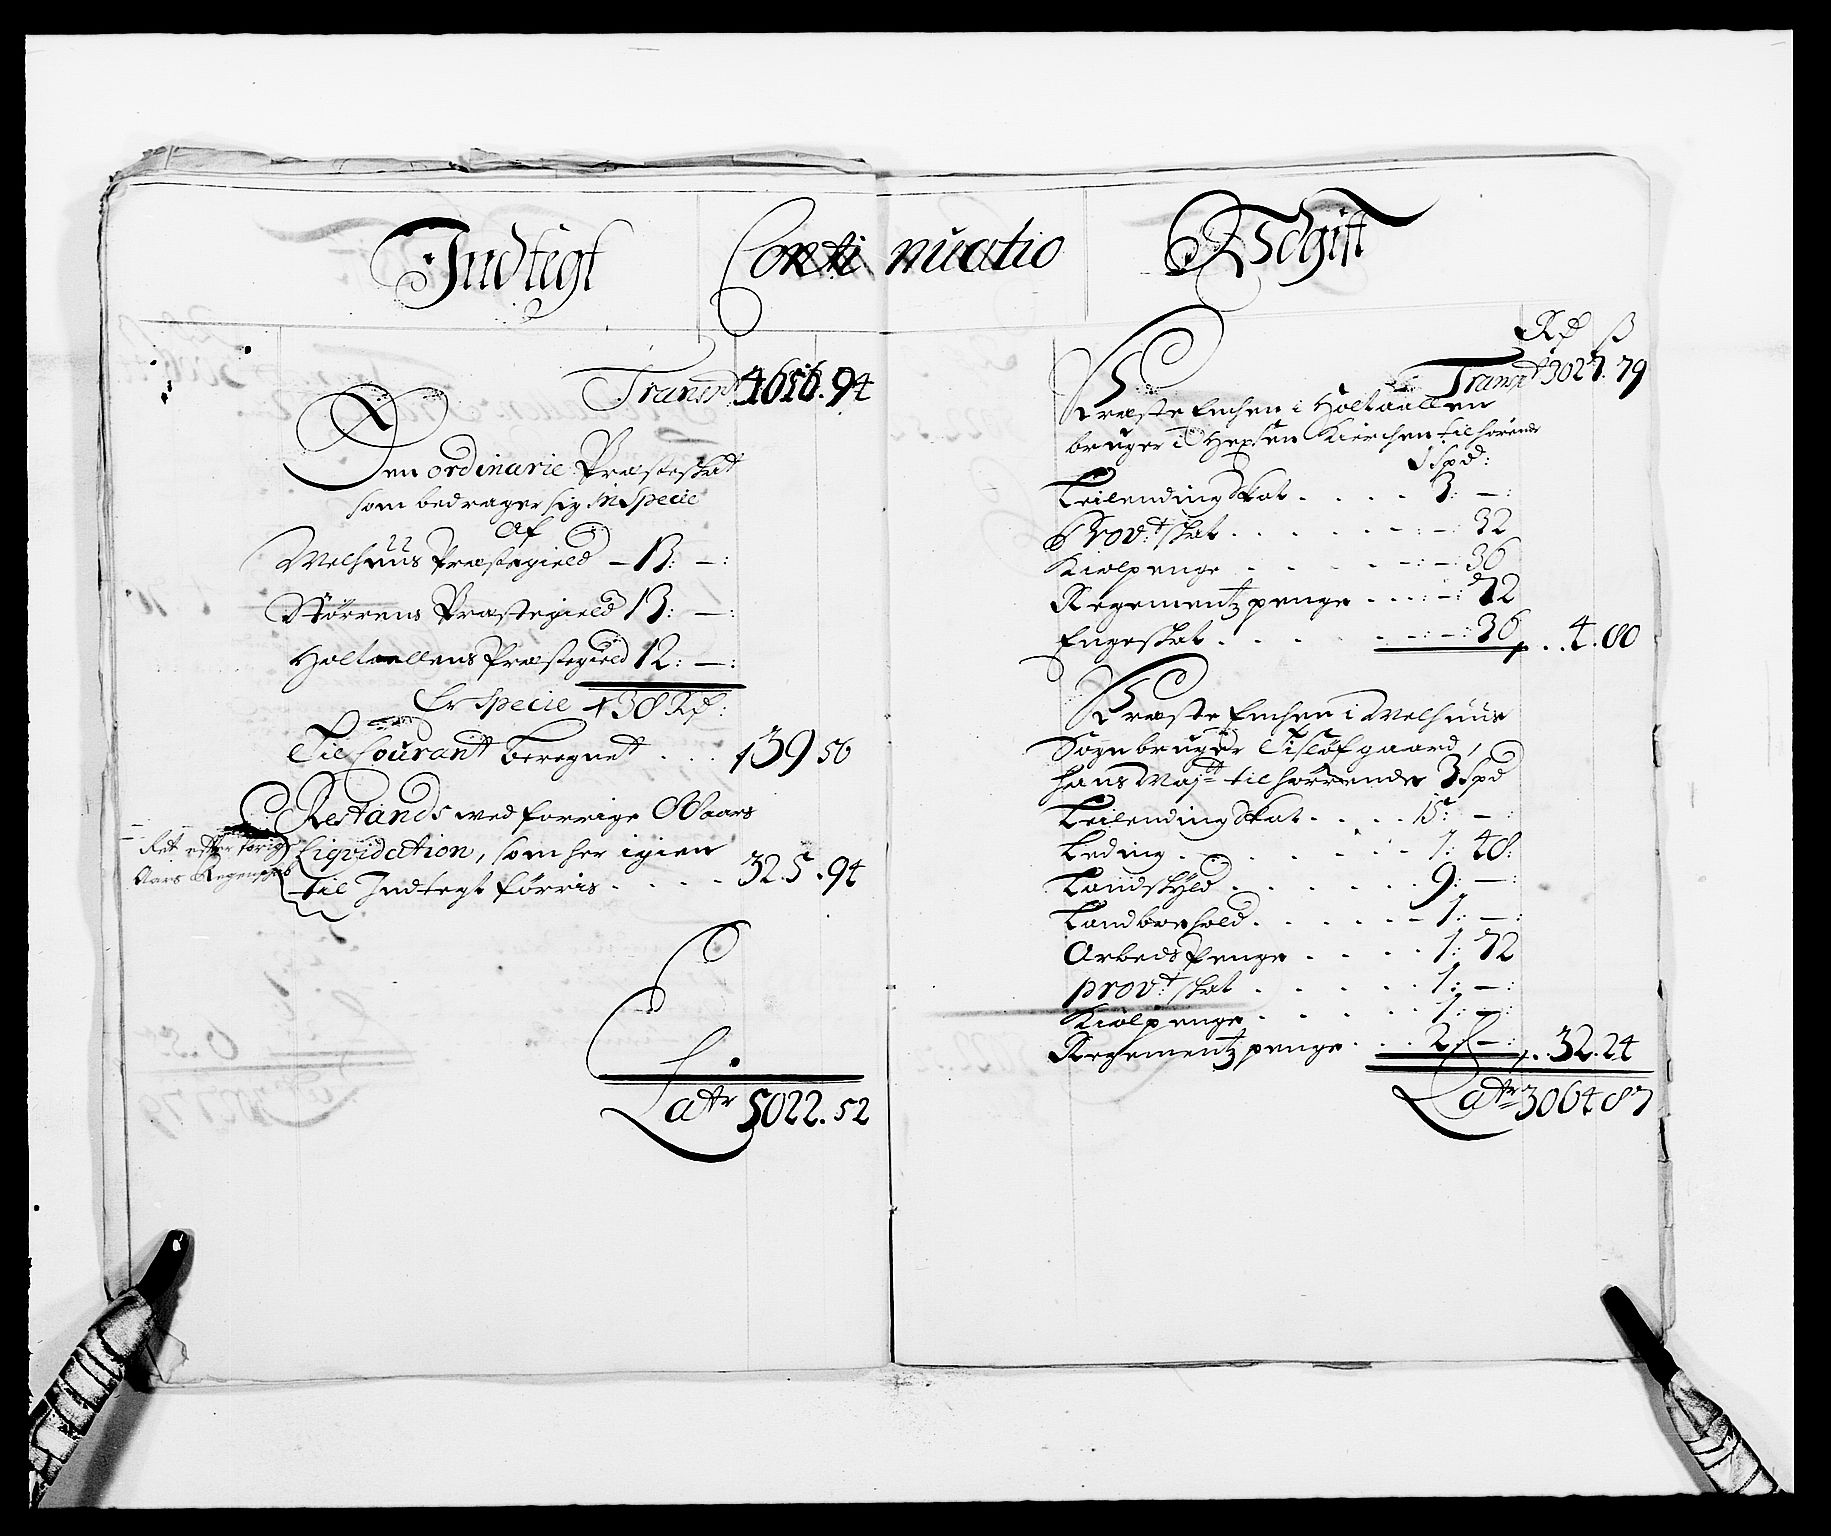 Indtegt Continuatio Udgift
Transp: 4656. 94
Den ordinarie Præsteskat
som bedrager sig in Specie
af
Welhuus Præstegield – 13: – :
Størrens Præstegield 13: – :
Holtaallens Præstegield 12: – :
Er Specie 38 Rd:
Til Courant beregnet . . . 39 56
Restands wed forrige Aars
Liqvidation, som her igien
til Indtegt førris . . . . 325. 94
Ret efter forrig
Aars Regenskab
Latr 5022. 52
Rd ß
Transpt 3027. 79
Præste Enchen i Holtaallen
bruger Kierchen tilhørende
1 Spd:
Leilending Skat . . . . 3: – :
Provt: skat . . . . . – : 32
Kiølpenge . . . . – : 36
Regementz penge . . . – : 72
Engeskat . . . . . – : 36 . . 4. 80
Præste Enchen i Welhuus
Sogn bruger gaard,
hans Mayt: tilhørrende 3 Spd
Leilending Skat . . . . 15: – :
Leding . . . . . . 1: 48:
Landskyld . . . . . . 9: – :
Landboehold . . . . . 1: – :
Arbeds Penge . . . . 1: 72
provt: skat . . . . . 1: – :
Kiølpenge . . . . . 1: – :
Regementz penge . . . 2: – : . . 32. 24
Latr 3064 87